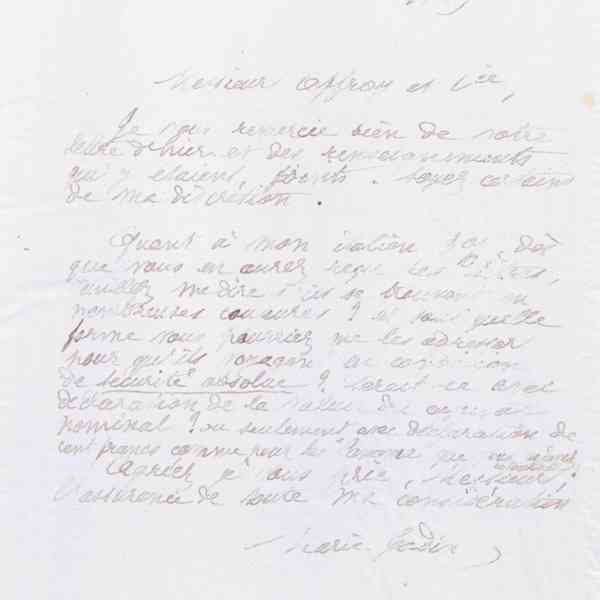 Messieurs Offroy et Cie,
Je vous remercie bien de votre
lettre d'hier et des renseignements
qui y étaient joints. Soyez certains
de ma discrétion.
Quant à mon italien 5 %, dès
que vous en aurez reçu les titres,
veuillez me dire s'ils se trouvent en
nombreuses coupures? et sous quelle
forme vous pourriez me les adresser
pour qu'ils voyagent en condition
de sécurité absolue? Serait ce avec
déclaration de la valeur du
nominal? ou seulement avec déclaration de
cent francs comme pour les que
Agréez je vous prie, Messieurs,
l'assurance de toute ma considération
Marie Godin